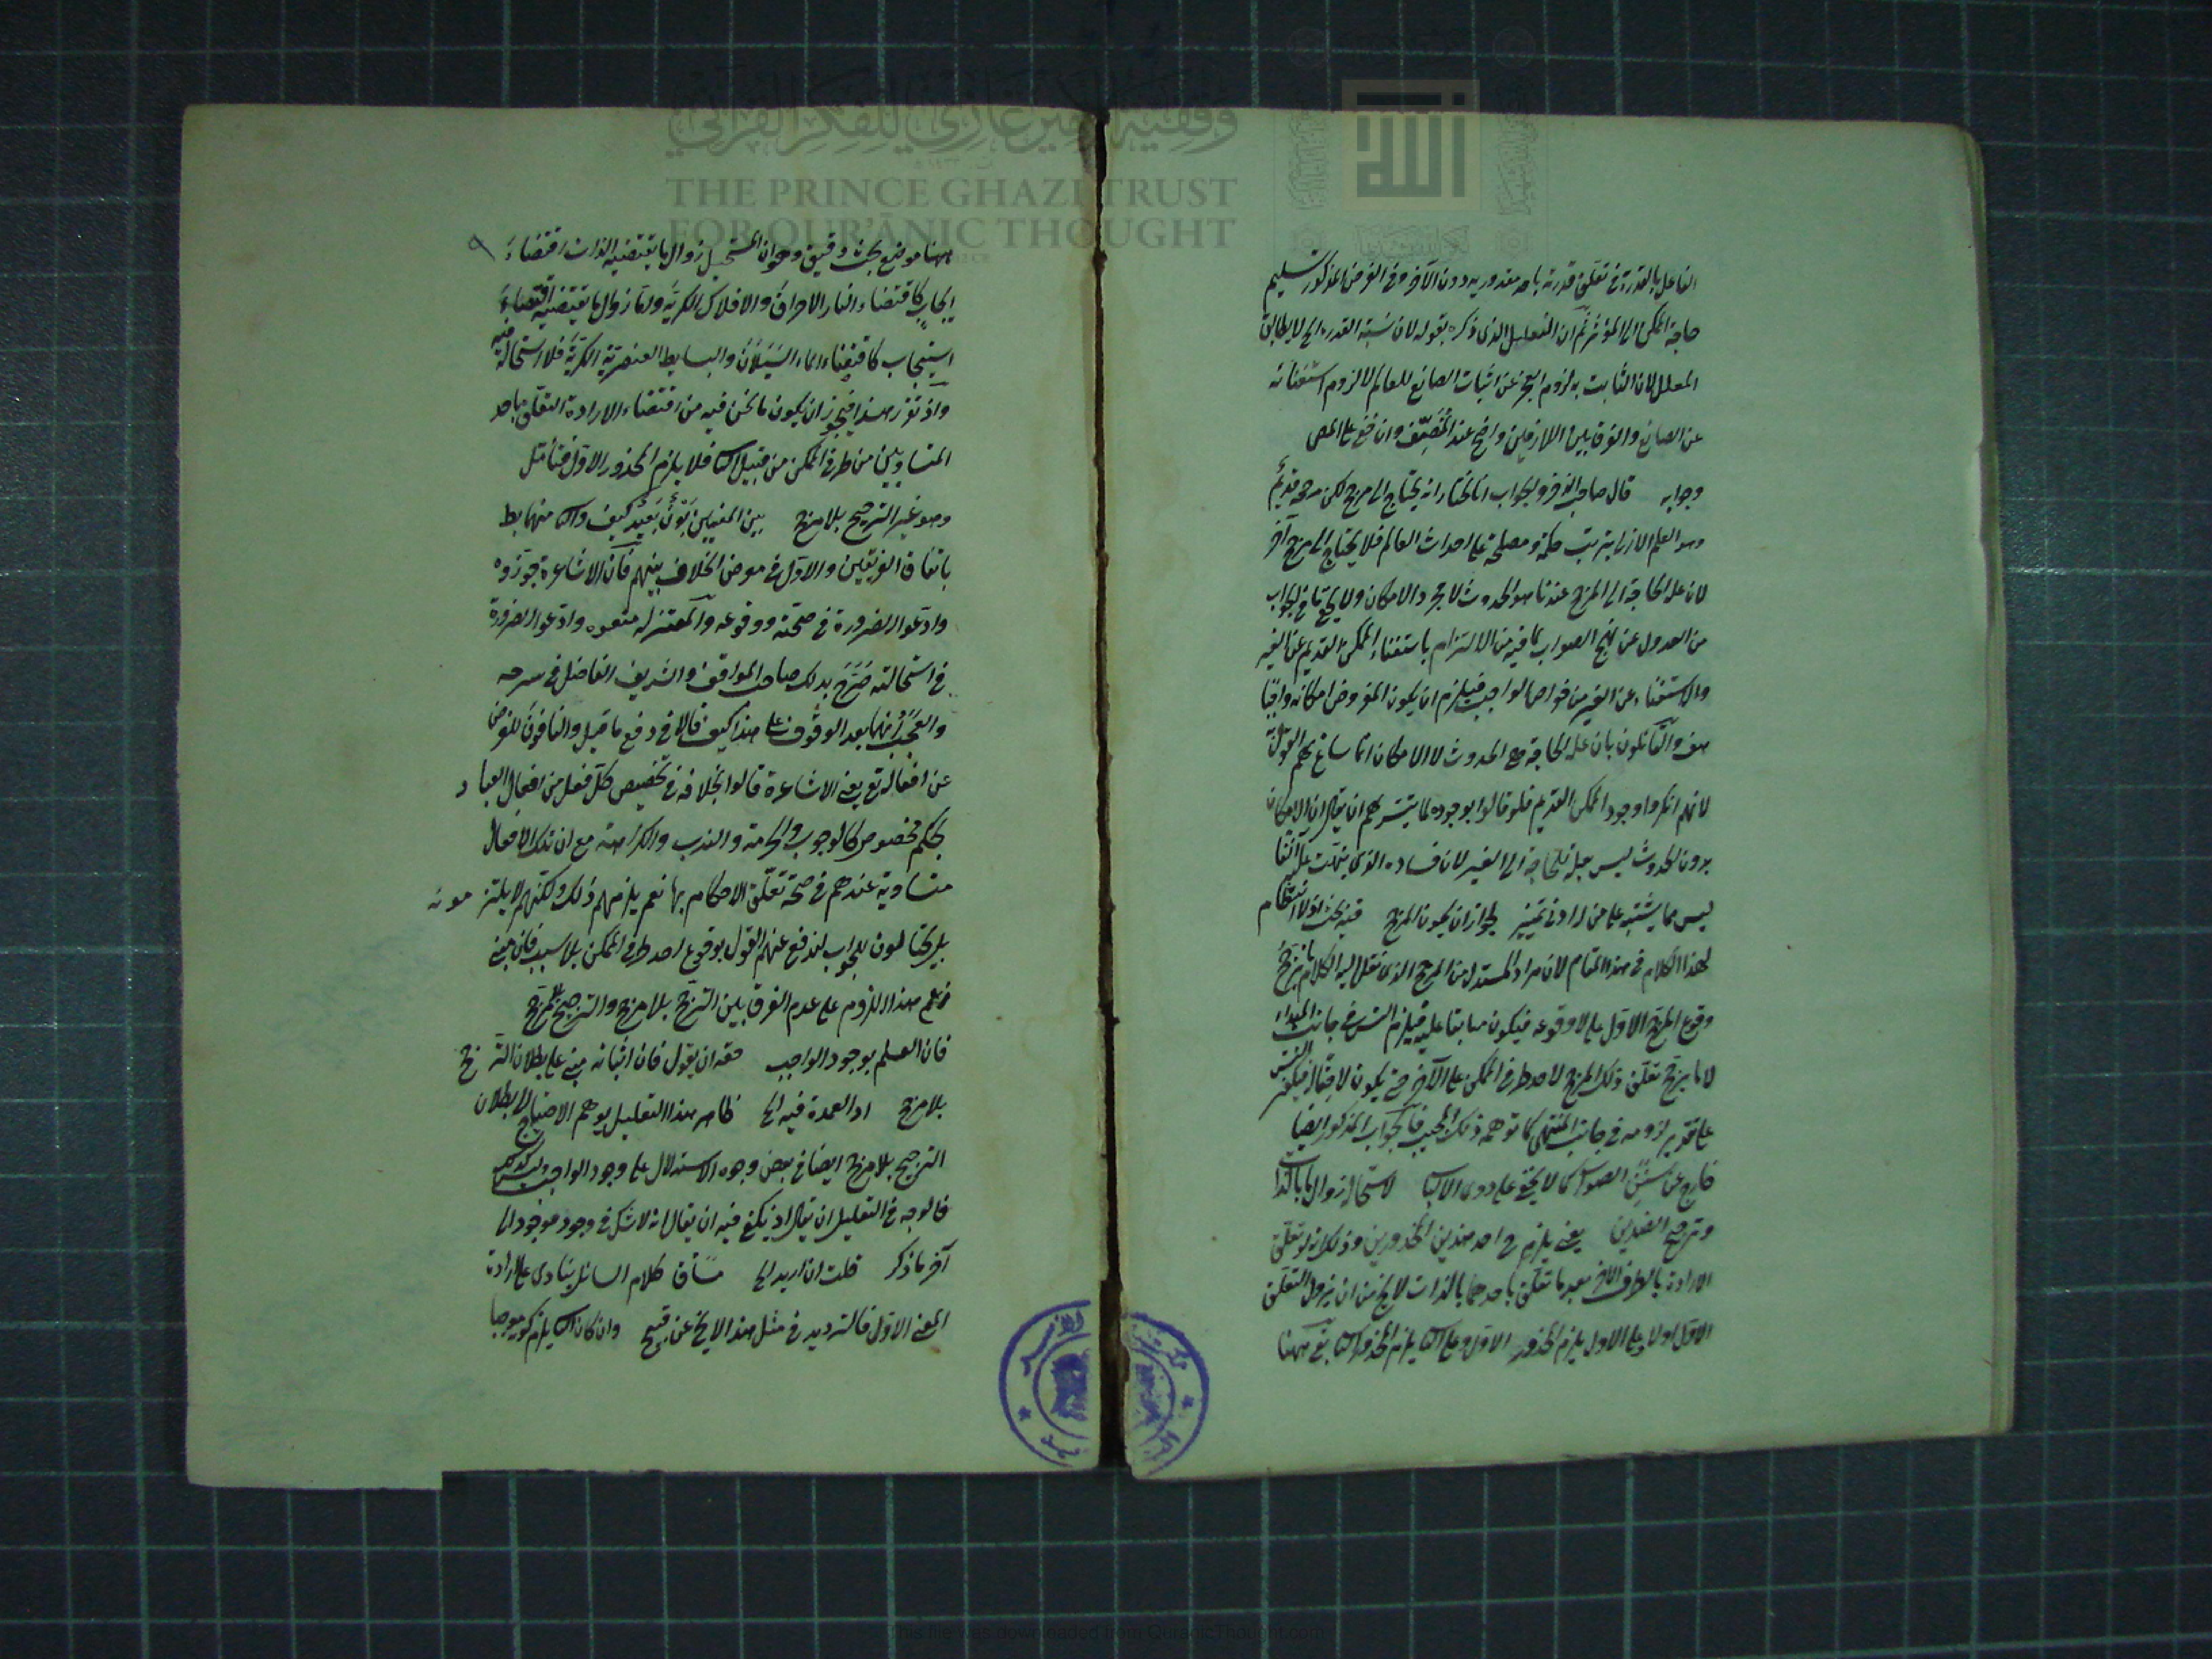 الفاعل بالقدرة في تعلق قدرته باحد مقدوريه دون الآخر وفي الفرض المذكور تسليم
حاجة الممكن الى المؤثر ثم ان التعليل الذي ذكره بقوله لان نسبة القدرة الخ لا يطابق
المعلل لان الثابت به لزوم العجز عن اثبات الصانع للعالم لا لزوم استغنائه
عن الصانع والفرق بين اللازمين واضح عند المُصَنِّف وان خفي على
وجوابه قال صاحب والجواب انا نختار انه يحتاج الى مرجح لكن مرجحه قديمٌ
وهو العلم الازلي بترتب حكمة ومصلحة على احداث العالم فلا يحتاج الى مرجح آخر
لان علة الحاجة الى المرجح عندنا هو الحدوث لا مجرد الامكان ولا يخفى ما في الجواب
من العدول عن نهج الصواب لما فيه من الالتزام باستغناء الممكن القديم عن الغير
والاستغناء عن الغير من خواص الواجب فيلزم ان يكون المفروض امكانه واجبًا
هف والقائلون بان علة الحاجة هي الحدوث لا الامكان انما ساغ لهم القول
لانهم انكروا وجود الممكن القديم فلو قالوا بوجوده لما يتيسر لهم ان يقال ان الامكان
بدون الحدوث ليس بعلة للحاجة الى الغير لان فساده الذي نبهت عليه آنفا
ليس مما يشتبه على من له ادنى تمييز لجواز ان يكون المرجح فيه بحث اولا انتظام
لهذا الكلام في هذا المقام لان مراد المستدل من المرجح الذي نقل اليه الكلام ما يرجح
وقوع المرجح الاول على لا وقوعه فيكون سابقا عليه فيلزم التس في جانب المبدا
لا ما يرجح تعلق ذلك المرجح لاحد طرفي الممكن على الآخر حتى يكون لاحقا له فيكون التس
على تقدير لزومه في جانب المنتهى كما توهمه ذلك المجيب فالجواب المذكور ايضا
خارج عن سَنَن الصواب كما لا يخفى على ذوي الالباب لاستحالة زوال ما بالذات
وترجيح الضدين يعني يلزم ح احد هذين المحذورين وذلك انه لو تعلق
الارادة بالطرف الآخر بعد ما تعلق باحدهما بالذات لا يخ من ان يزول التعلق
الاول اولا وعلى الاول يلزم المحذور الاول وعلى الثا يلزم المحذور الثا بقي ههنا
٩
ههنا موضع بحث دقيق وهو ان المستحيل زوال ما يقتضيه الذات اقتضاءَ
ايجابٍ كاقتضاء النار الاحراقَ والافلاك الكريةَ واما زوال ما يقتضيه اقتضاءَ
استيجاب كاقتضاء الماء السَيَلانَ والبسايط العنصرية الكريّةَ فلا استحالة فيه
واذ تقرر هذا فيجوز ان يكون ما نحن فيه من اقتضاء الارادة التعلق باحد
المتساويين من طرفي الممكن من قبيل الثا فلا يلزم المحذور الاول فتأمل
وهو غير الترجيح بلا مرجح بين المعنيين بَوْنٌ بَعِيدٌ كيف والثا منهما بط
باتفاق الفريقين والاول في معرض الخلاف بينهم فان الاشاعرة جوّزوه
وادّعوا الضرورة في صحّته ووقوعه والمعتزلة منعوه وادّعوا الضرورة
في استحالته صَرَّحَ بذلك صاحب المواقف والشريف الفاضل في شرحه
والعَجَبُ انهما بعد الوقوف على هذا كيف قالا في دفع ما قيل والنافون للغرض
عن افعاله تع يعني الاشاعرة قالوا بخلافه في تخصيص كل فعل من افعال العباد
بحكم مخصوص كالوجوب والحرمة والندب والكراهة مع ان تلك الافعال
متساوية عندهم في صحة تعلّق الاحكام بها نعم يلزمهم ذلك ولكنهم لا يلتزمونه
بل يحتالون للجواب لدفع عنهم القول بوقوع احد طرفي الممكن بلا سبب فان مبنى
زعم هذا اللزوم على عدم الفرق بين الترجّح بلا مرجح والترجيح بلا مرجح
فان العلم بوجود الواجب حقه ان يقول فان اثباته مبني على بطلان الترجح
بلا مرجح اذ العمدة فيه الخ ظاهر هذا التعليل يوهم الاحتياج الى بطلان
الترجيح بلا مرجح ايضا في بعض وجوه الاستدلال على وجود الواجب وليس كذلك
فالوجه في التعليل ان يقال اذ يكفي فيه ان يقال انه لا شك في وجود موجود الى
آخر ما ذكر قلت ان اريد الخ مساق كلام السائل ينادي على ارادة
المعنى الاول فالترديد في مثل هذا لا يخ عن قبح وان كان الثا يلزم كونه موجبا
وقفية الأمير غازي للفكر القرآني
THE PRINCE GHAZI TRUST
FOR QUR'ĀNIC THOUGHT
الله
This file was downloaded from QuranicThought.com